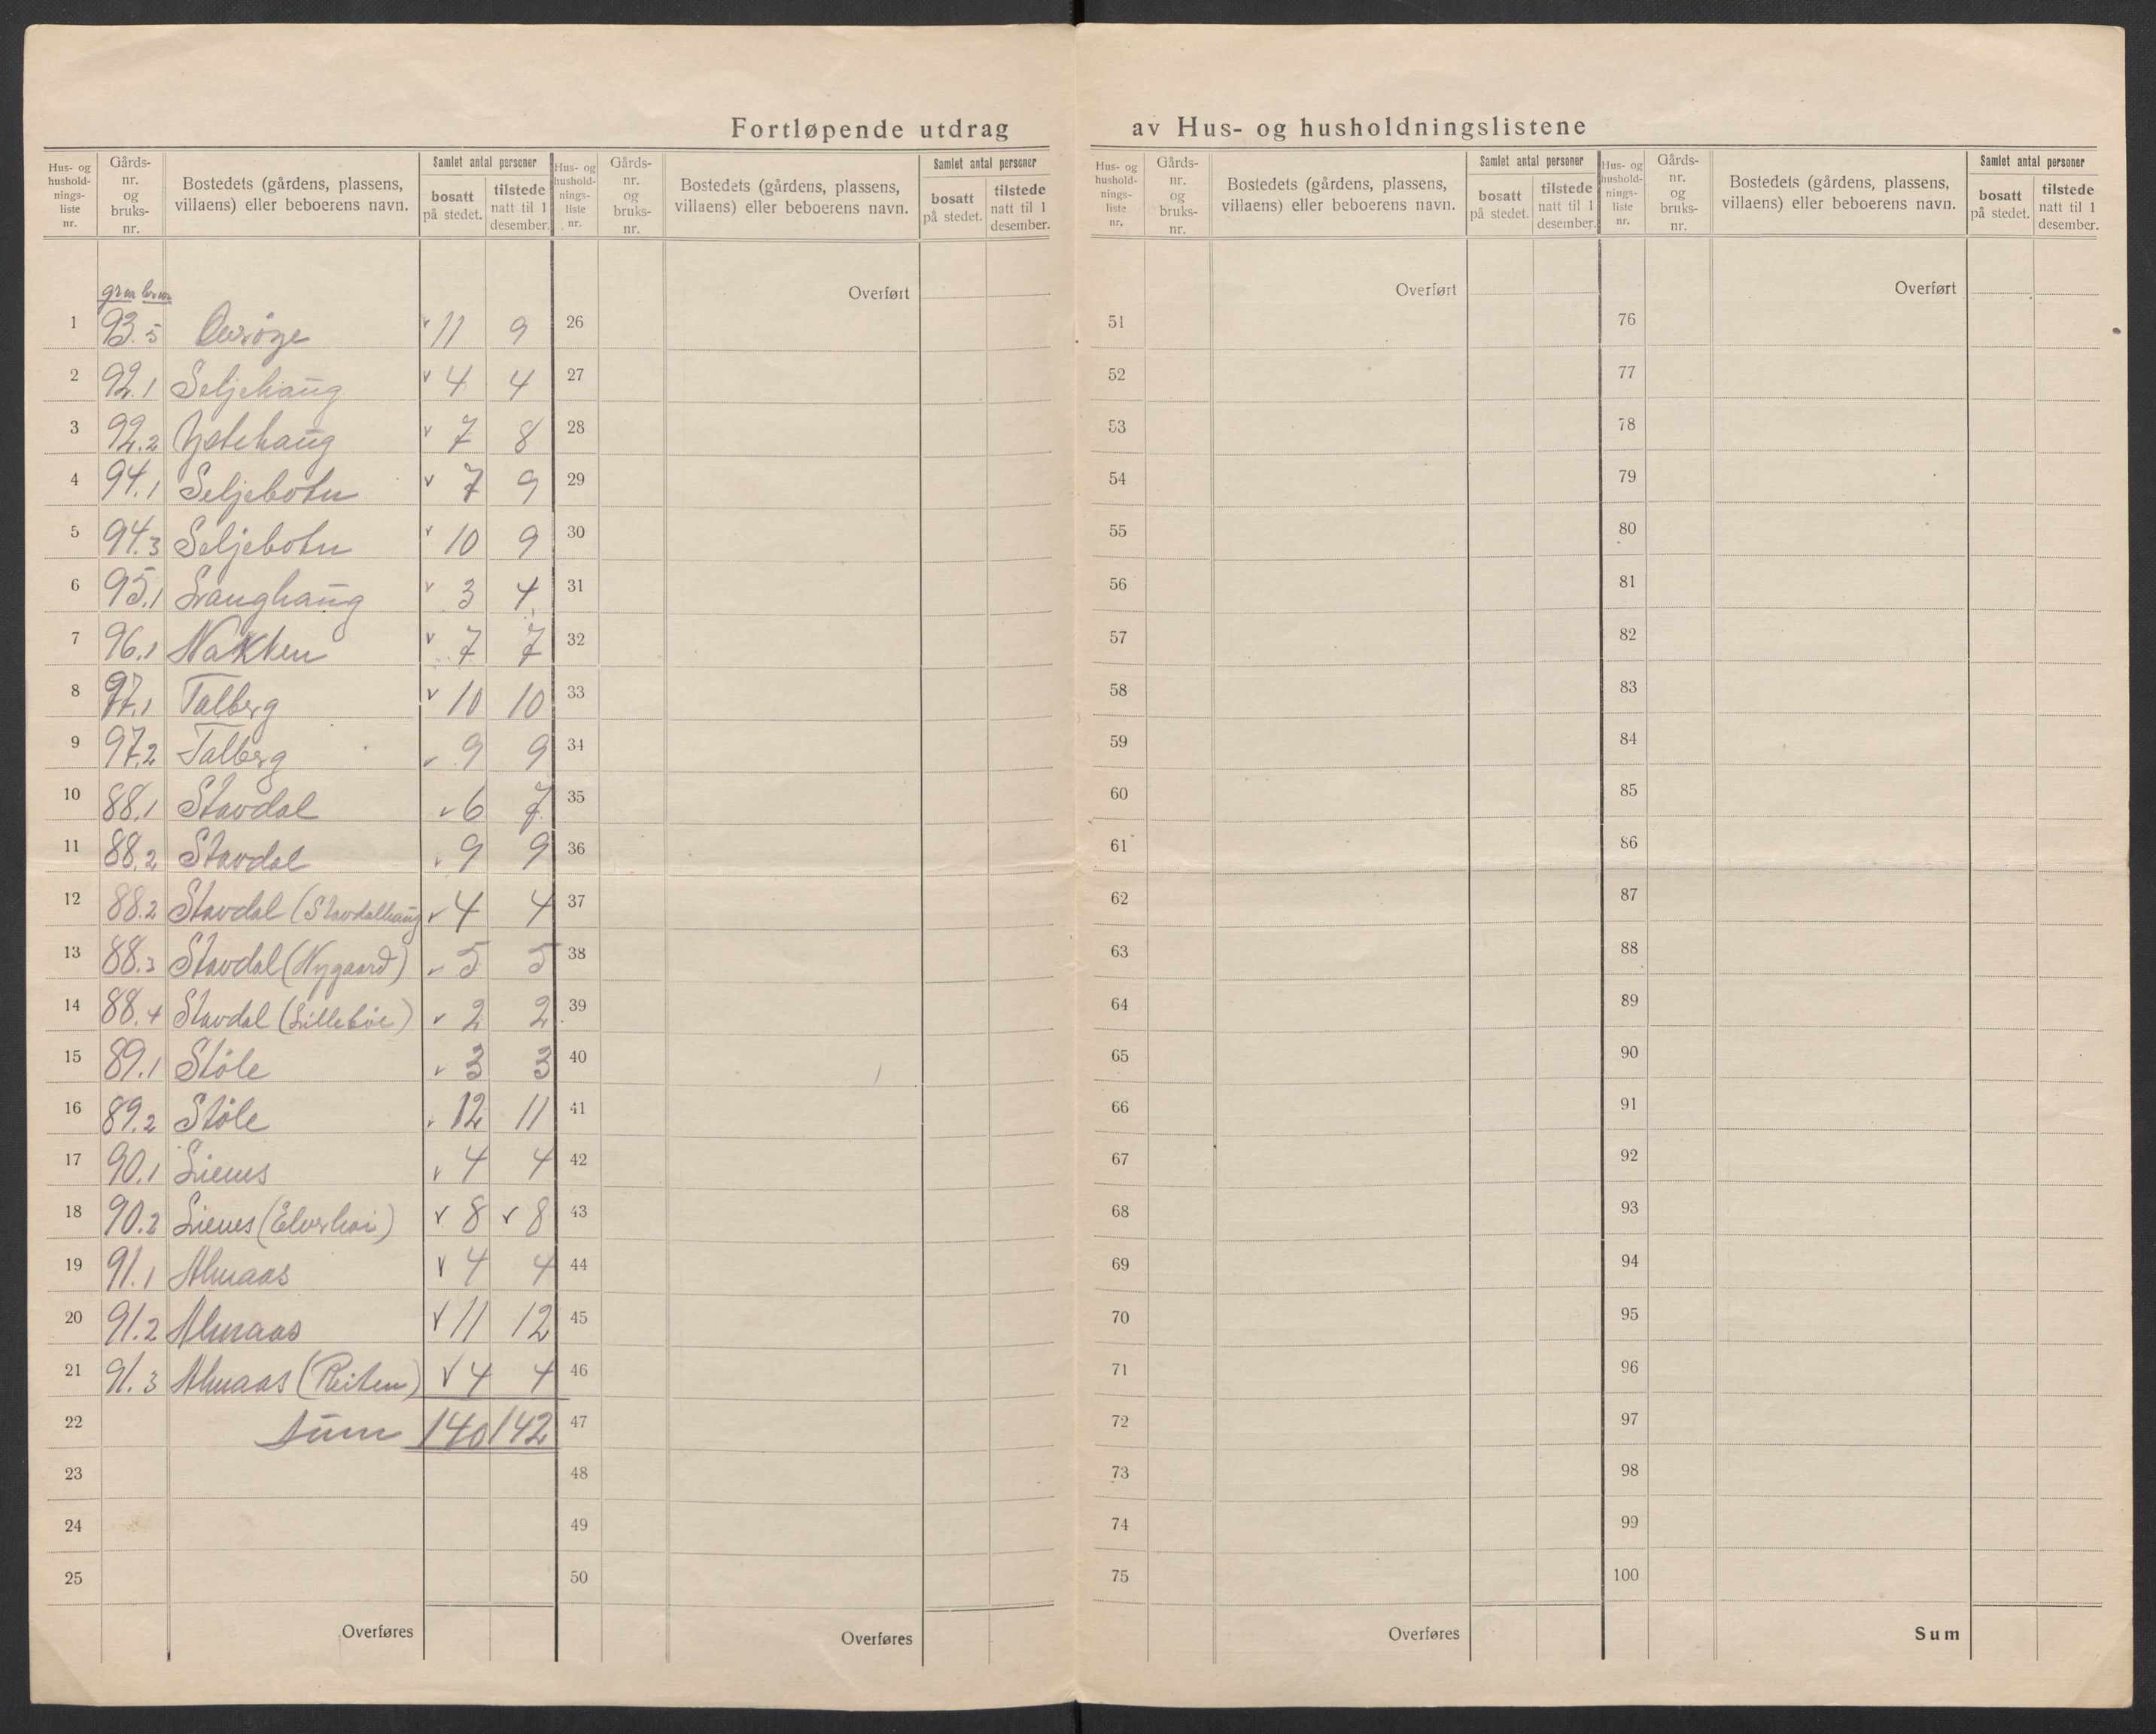 Fortløpende utdrag av Hus- og husholdningslistene
Hus- og husholdningsliste nr. Gårds-nr. og bruks-nr. Bostedets (gårdens, plassens, villaens) eller beboerens navn. Samlet antal personer bosatt på stedet. tilstede natt til 1 desember.
Hus- og husholdningsliste nr. Gårds-nr. og bruks-nr. Bostedets (gårdens, plassens, villaens) eller beboerens navn. Samlet antal personer bosatt på stedet. tilstede natt til 1 desember.
Hus- og husholdningsliste nr. Gårds-nr. og bruks-nr. Bostedets (gårdens, plassens, villaens) eller beboerens navn. Samlet antal personer bosatt på stedet. tilstede natt til 1 desember.
Hus- og husholdningsliste nr. Gårds-nr. og bruks-nr. Bostedets (gårdens, plassens, villaens) eller beboerens navn. Samlet antal personer bosatt på stedet. tilstede natt til 1 desember.
Overført Overført Overført
1 93.5 11 9 26 51 76
2 92.1 Seljehaug 4 4 27 52 77
3 92.2 7 8 28 53 78
4 94.1 Seljebotn 7 9 29 54 79
5 94.3 Seljebotn 10 9 30 55 80
6 95.1 Langhaug 3 4 31 56 81
7 96.1 Nakken 7 7 32 57 82
8 97.1 Talberg 10 10 33 58 83
9 97.2 Talberg 9 9 34 59 84
10 88.1 Stavdal 6 7 35 60 85
11 88.2 Stavdal 9 9 36 61 86
12 88.2 Stavdal (Stavdalhaug 4 4 37 62 87
13 88.3 Stavdal (Nygaard) 5 5 38 63 88
14 88.4 Stavdal (Lilleböe) 2 2 39 64 89
15 89.1 Stöle 3 3 40 65 90
16 89.2 Stöle 12 11 41 66 91
17 90.1 Lienes 4 4 42 67 92
18 90.2 Lienes (Elverhöi) 8 8 43 68 93
19 91.1 Almaas 4 4 44 69 94
20 91.2 Almaas 11 12 45 70 95
21 91.3 Almaas (Reiten) 4 4 46 71 96
22 Sum 140 142 47 72 97
23 48 73 98
24 49 74 99
25 50 75 100
Overføres Overføres Overføres Sum